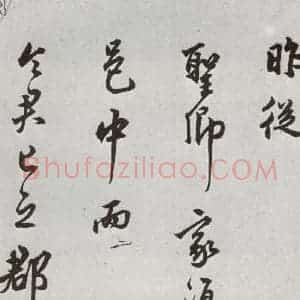 昨從
聖卿家
邑中兩
令君已之郡
Shufaziliao.COM